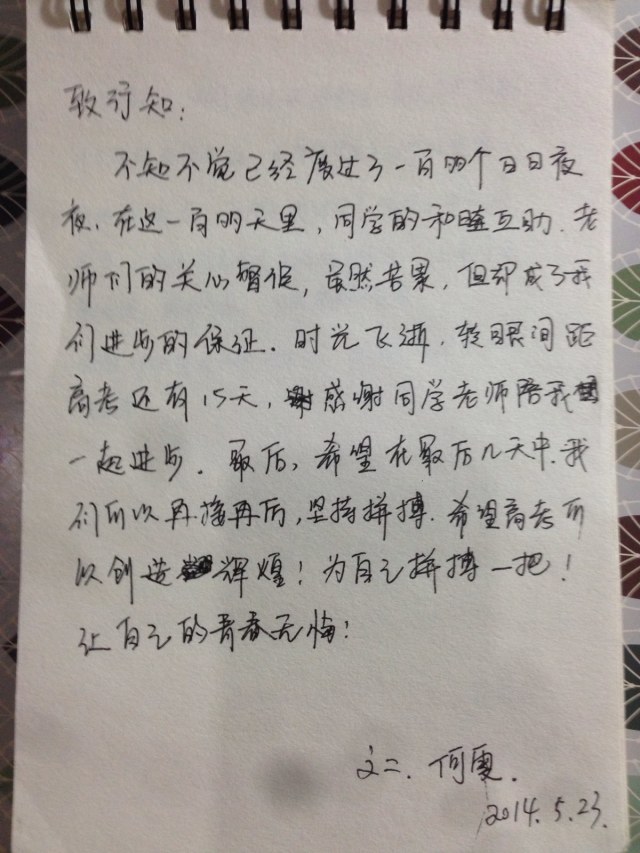 致行知:
不知不觉已经度过了一百多个日日夜
夜,在这一百多天里,同学的和睦互助,老
师们的关心督促,虽然苦累,但却成了我
们进步的保证.时光飞逝,转眼间距
高考还有15天,感谢同学老师陪我
一起进步.最后,希望在最后几天中,我
们可以再接再厉,坚持拼搏.希望高考可
以创造辉煌!为自己拼搏一把!
让自己的青春无悔!
文二.何
2014.5.23.